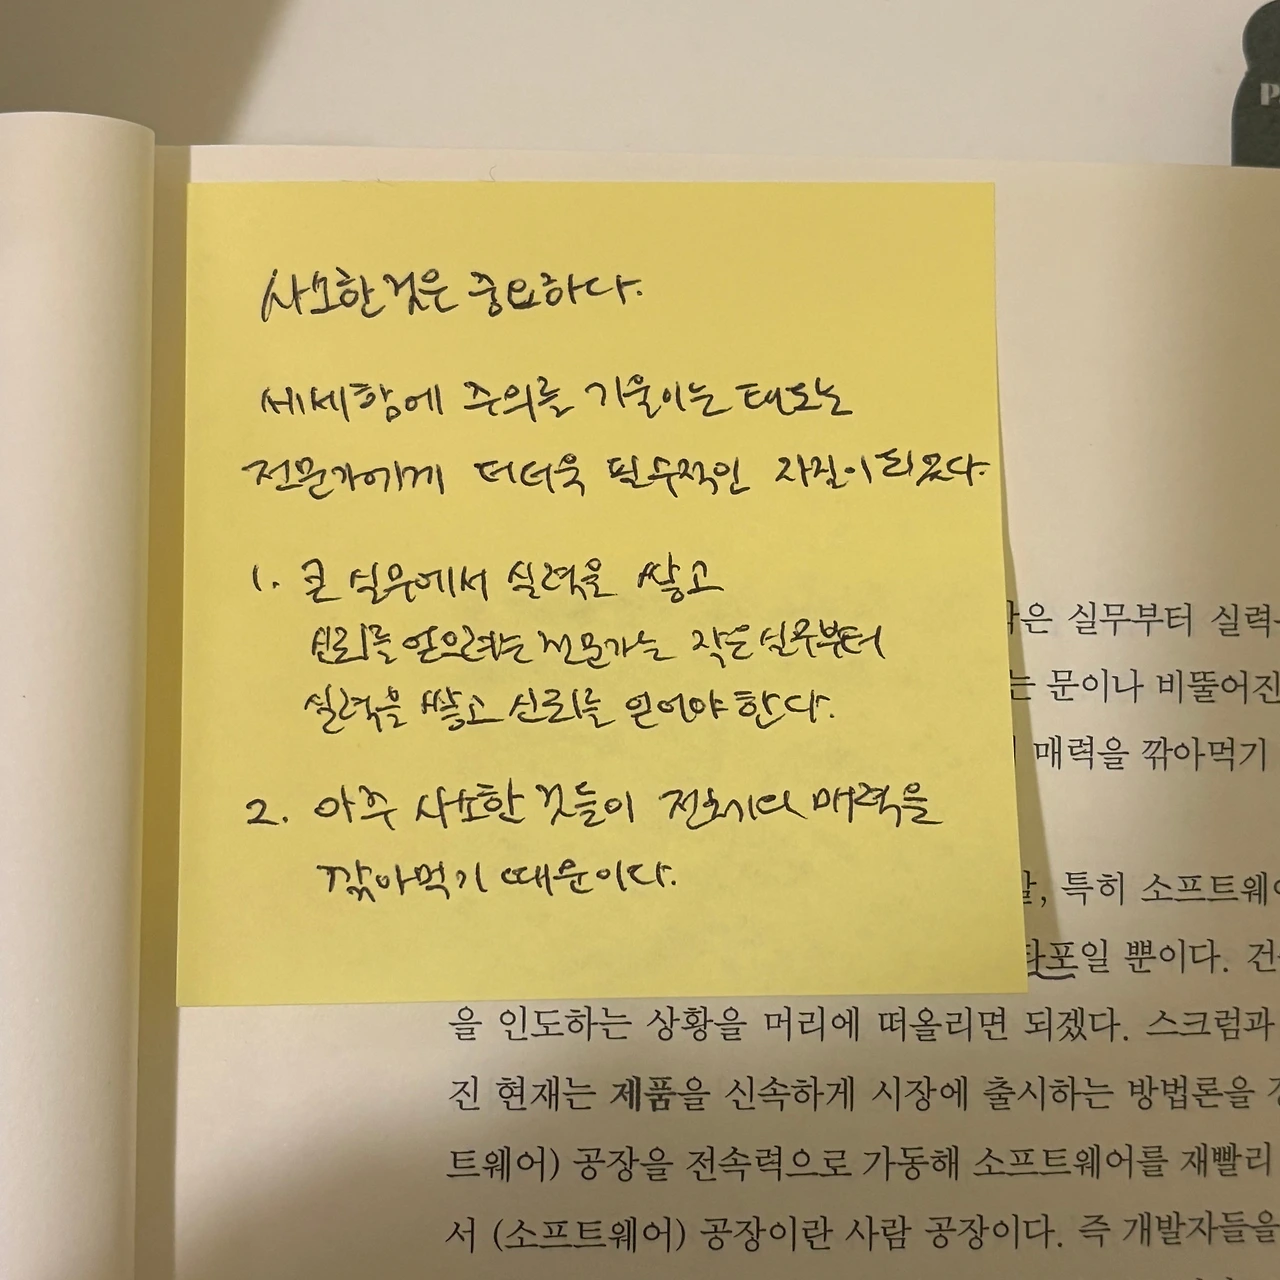 사소한 것은 중요하다.
세세함에 주의를 기울이는 태도는
전문가에게 더더욱 필수적인 자질이 되었다.
1. 큰 실무에서 실력을 쌓고
신뢰를 얻으려는 전문가는 작은 실무부터
실력을 쌓고 신뢰를 얻어야 한다.
2. 아주 사소한 것들이 전체의 매력을
깎아먹기 때문이다.
P
작은 실무부터 실력
는 문이나 비뚤어진
매력을 깎아먹기
특히 소프트웨어
타포일 뿐이다. 건
을 인도하는 상황을 머리에 떠올리면 되겠다. 스크럼과
진 현재는 제품을 신속하게 시장에 출시하는 방법론을
트웨어) 공장을 전속력으로 가동해 소프트웨어를 재빨리
서 (소프트웨어) 공장이란 사람 공장이다. 즉 개발자들을